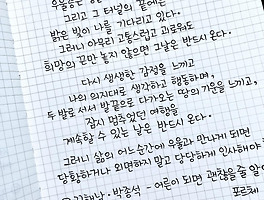 그리고 그 터널의 끝에는
밝은 빛이 나를 기다리고 있다.
그러니 아무리 고통스럽고 괴로워도
희망의 끈만 놓지 않으면 그날은 반드시 온다.
다시 생생한 감정을 느끼고
나의 의지대로 생각하고 행동하며,
두 발로 서서 발끝으로 다가오는 땅의 기운을 느끼고,
잠시 멈추었던 여행을
계속할 수 있는 날은 반드시 온다.
그러니 삶의 어느순간에 우울과 만나게 되면
당황하거나 외면하지 말고 당당하게 인사해야
박종석 - 어른이 되면 괜찮을 줄 알
포르체